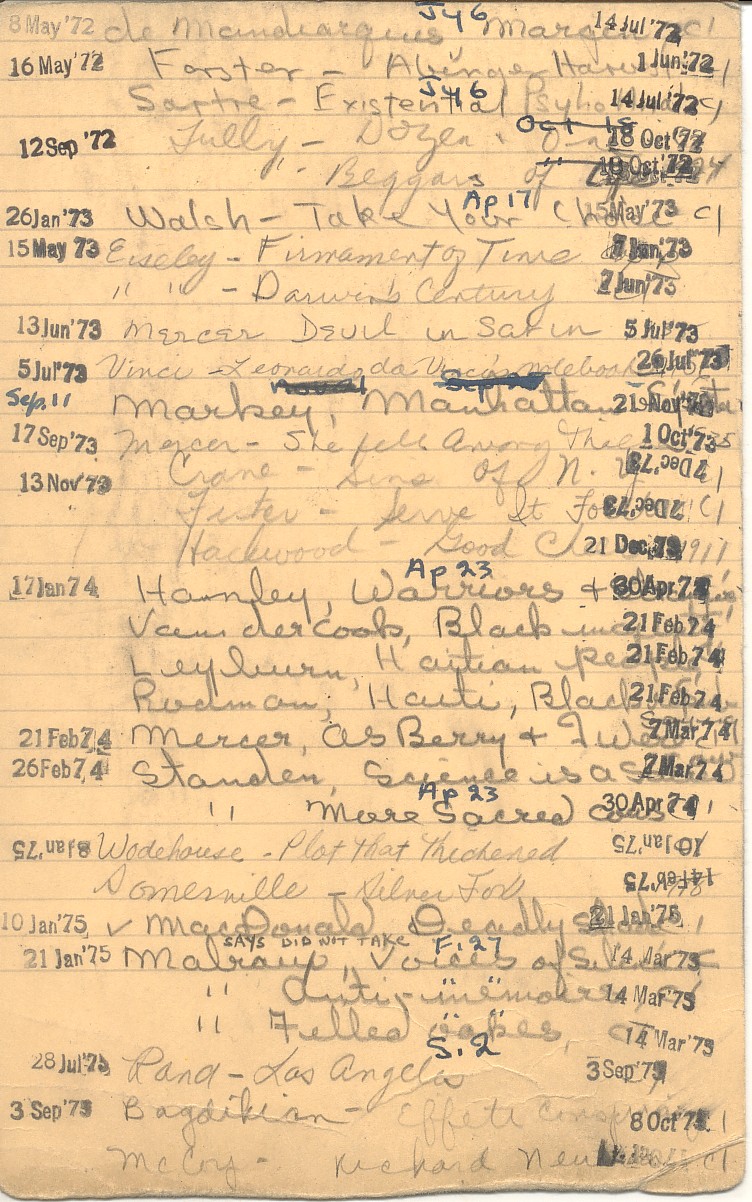 8 May '72 de Mandiargues Margin Jy 6 14 Jul '72 C1
16 May '72 Forster - Abinger Harvest 1 Jun '72
Sartre - Existential Psycho Jy 6 14 Jul '72 C1
12 Sep '72 Tully - Dozen Oct 18 18 Oct '72
" - Beggars of Life " 10 Oct '72
26 Jan '73 Walsh - Take Your Choice Ap 17 15 May '73 C1
15 May 73 Eiseley - Firmament of Time 7 Jun '73
" " - Darwin's Century 7 Jun '73
13 Jun '73 Mercer Devil in Satin 5 Jul '73
5 Jul '73 Vinci - Leonardo da Vinci notebook 26 Jul '73
Sep. 11 Markey, Manhattan 21 Nov '73
17 Sep '73 Mercer - She fell Among Thieves 1 Oct '73
Crane - Sins of N. Y. 7 Dec '73 C1
13 Nov '73
Serve It 7 Dec '73 C1
Good 21 Dec 73
17 Jan 74 Hamley, Warriors & Ap 23 30 Apr 74
Vandercook, Black 21 Feb 74
Leyburn, Haitian People 21 Feb 74
Rodman, Haiti, Black 21 Feb 74
21 Feb 74 Mercer, as Berry & I 7 Mar 74
26 Feb 74 Standen, Science is a 7 Mar 74
" More Sacred Cows Ap 23 30 Apr 74
8 Jan '75 Wodehouse - Plot that thickened 10 Jan '75
Somerville - Silver Fox 14 Feb '75
10 Jan '75 ✓ MacDonald Deadly 21 Jan '75
SAYS DID NOT TAKE F. 27
21 Jan '75 Malraux, Voices of Silence 14 Mar '75
" Anti-memoirs 14 Mar '75
" Felled oakes, 14 Mar '75
28 Jul '75 Rand - Los Angeles S. 2 3 Sep '75
3 Sep '75 Bagdikian - Effete Conspiracy 8 Oct '75
McCoy - Richard C1